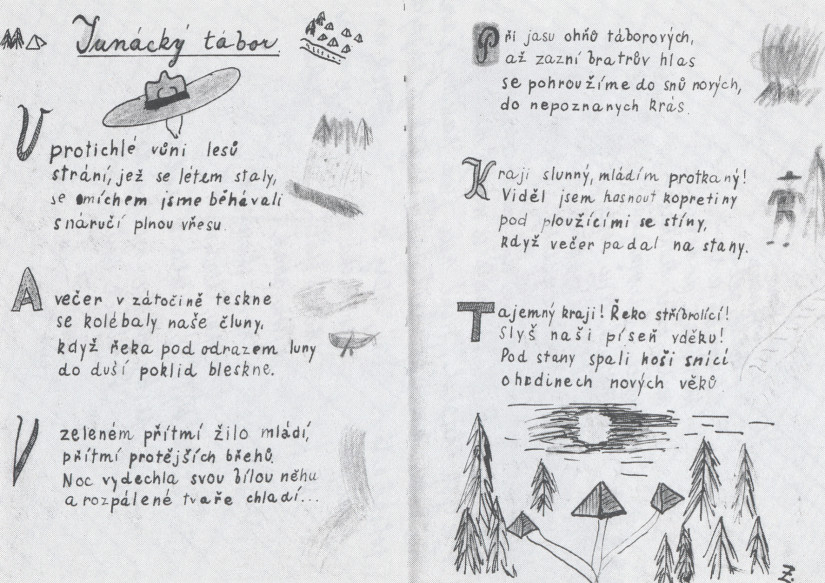 Junácký tábor
V protichlé vůni lesů
strání, jež se létem staly,
se smíchem jsme běhávali
s náručí plnou vřesu.
A večer v zátočině teskné
se kolébaly naše čluny,
když řeka pod odrazem luny
do duší poklid bleskne.
V zeleném přítmí žilo mládí,
přítmí protějších břehů.
Noc vydechla svou bílou něhu
a rozpálené tváře chladí...
Při jasu ohňů táborových,
až zazní bratrův hlas
se pohroužíme do snů nových,
do nepoznaných krás.
Kraji slunný, mládím protkaný!
Viděl jsem hasnout kopretiny
pod ploužícími se stíny,
když večer padal na stany.
Tajemný kraji! Řeko stříbrolící!
Slyš naši píseň vděku!
Pod stany spali hoši snící
o hrdinech nových věků
Ž